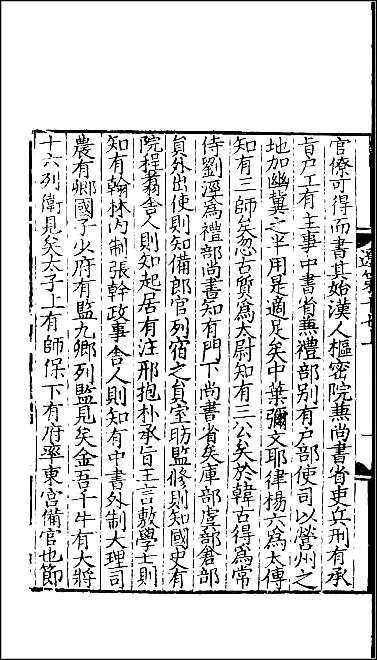 官僚可得而書其始漢人樞密院兼尚書省吏兵刑有承
旨户工有主事中書省兼禮部別有户部使司以營州之
地加幽冀之半用是適足矣中葉彌文耶律楊六爲太傅
知有三師矣忽古質爲太尉知有三公矣於韓古得爲常
侍劉涇爲禮部尚書知有門下尚書省矣庫部虞部倉部
員外出使則知備郎官列宿之員室昉監修則知國史有
院程翥舍人則知起居有注邢抱朴承旨王言敷學士則
知有翰林內制張幹政事舍人則知有中書外制大理司
農有卿國子少府有監九卿列監見矣金吾千牛有大將
十六列衛見矣太子上有師保下有府率東宮備官也節